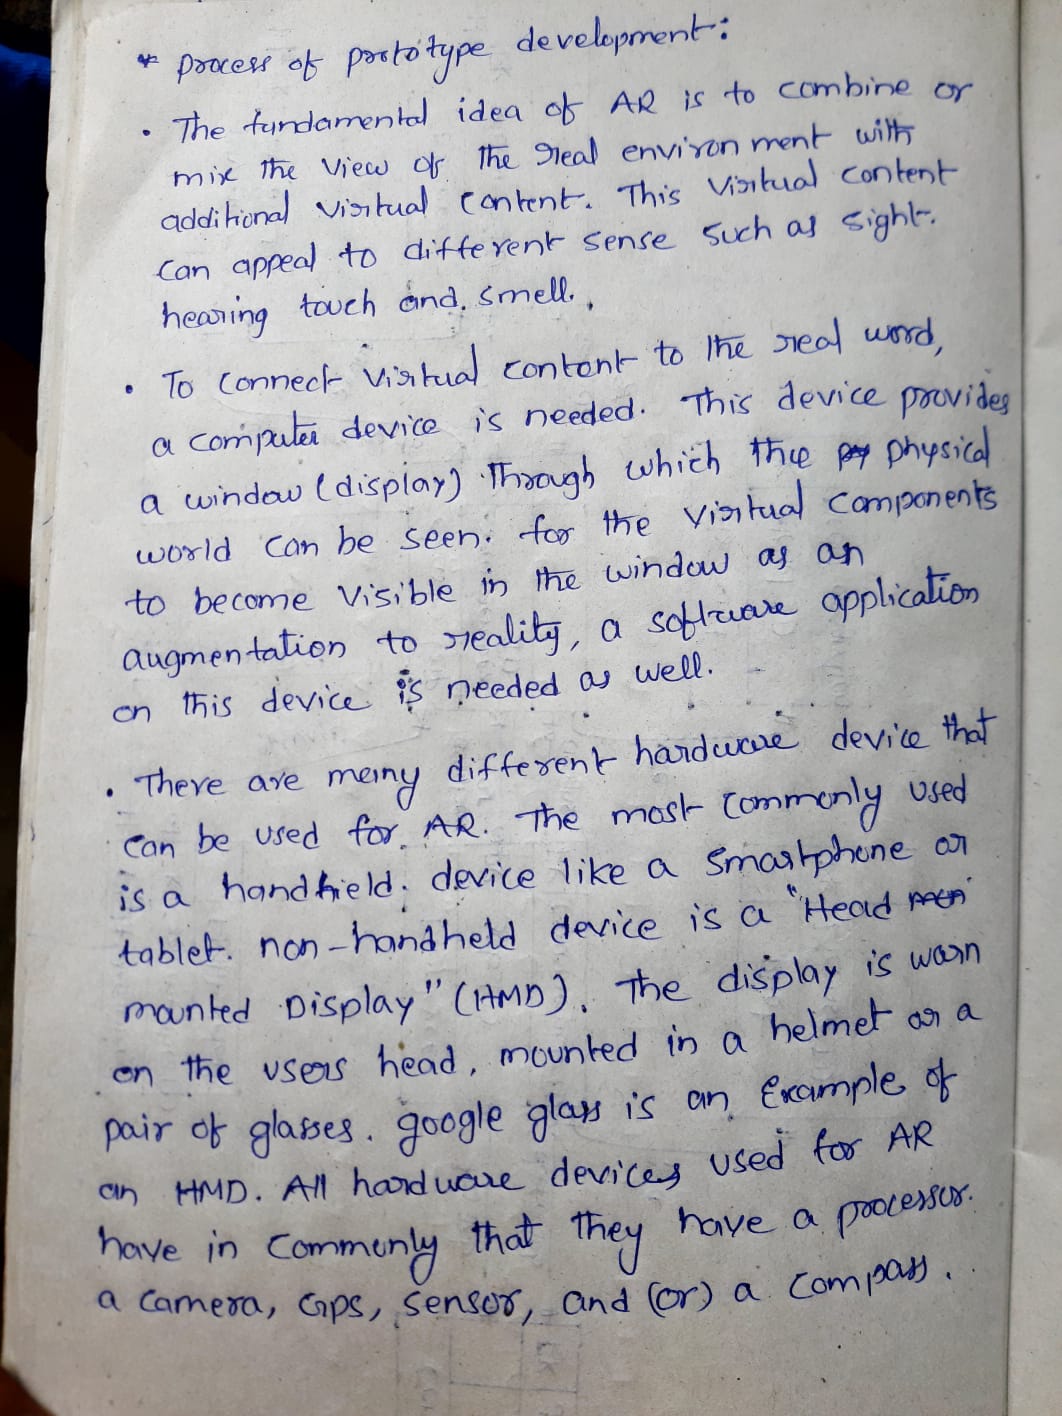 * process of prototype development:
• The fundamental idea of AR is to combine or
mix the view of the real environment with
additional virtual content. This virtual content
can appeal to different sense such as sight.
hearing touch and. smell.
• To connect virtual content to the real word,
a computer device is needed. This device provides
a window (display) through which the physical
world can be seen. for the virtual components
to become visible in the window as an
augmentation to reality, a software application
on this device is needed as well.
• There are many different hardware device that
can be used for AR. The most commonly used
is a handhield. device like a smartphone or
tablet. non-handheld device is a "Head
mounted Display" (HMD). The display is warn
on the users head, mounted in a helmet or a
pair of glasses. google glass is an Example of
an HMD. All hardware devices used for AR
have in commonly that they have a processor.
a camera, GPS, sensor, and (or) a compass.